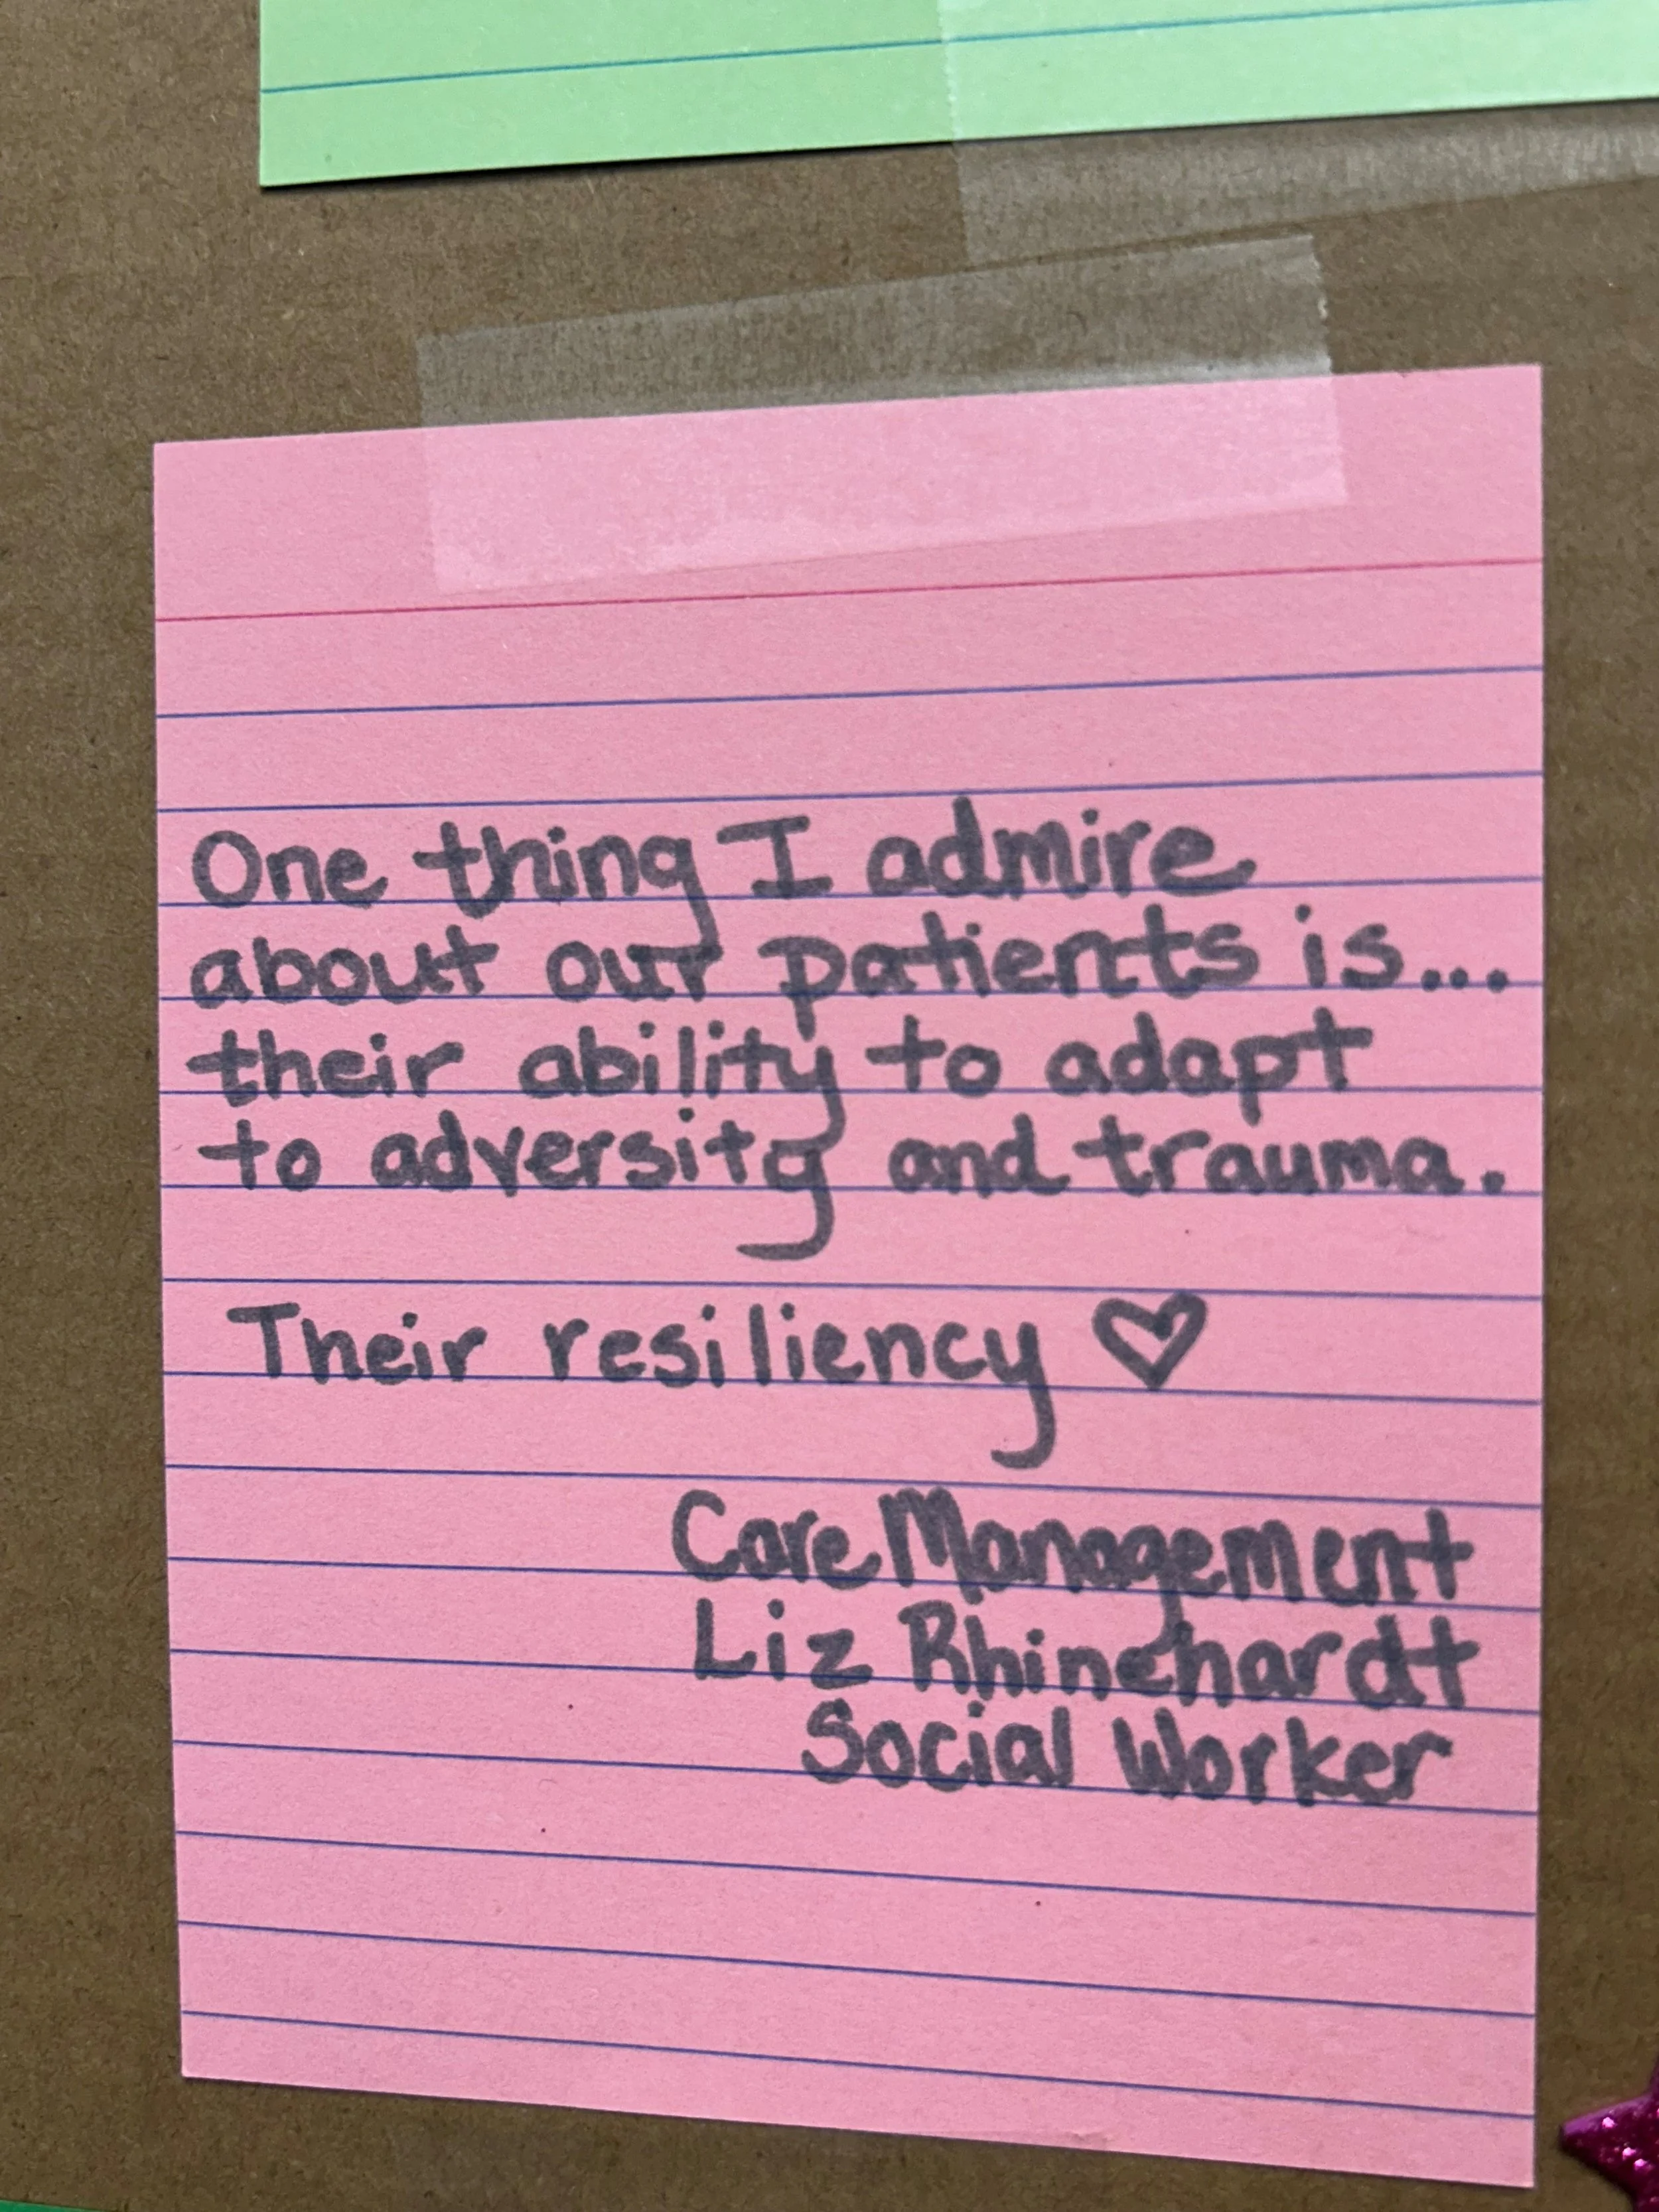 One thing I admire
about our patients is...
their ability to adapt
to adversity and trauma.
Their resiliency ♡
Care Management
Liz Rhinehardt
Social Worker